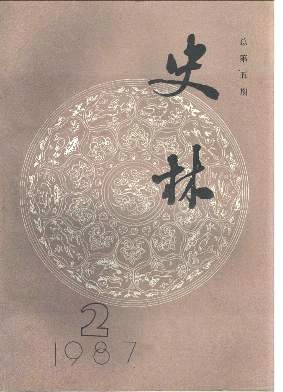 总第五期
史林
2
1987